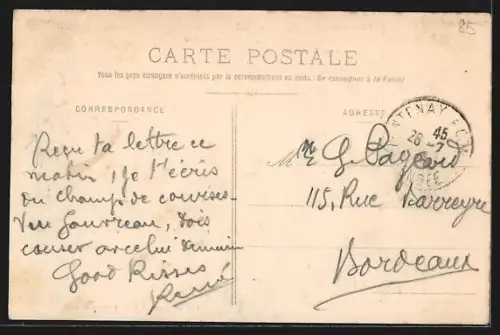 85
CARTE POSTALE
Tous les pays étrangers n'acceptent pas la correspondance au recto. (Se renseigner à la Poste)
CORRESPONDANCE
ADRESSE
NTENAY
45
26 - 7
Reçu ta lettre ce
matin, je t'écris
du champ de courses
Vu Gouvreau, dois
causer avec lui demain
Good Kisses
René
G. Pageaud
115, Rue Barreyre
Bordeaux